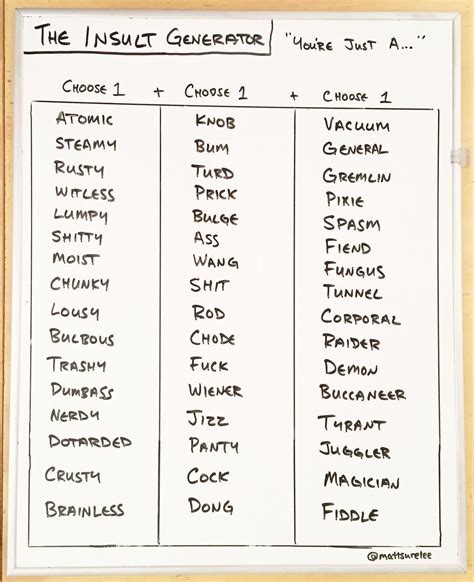 The Insult Generator "You're Just A..."
Choose 1 + Choose 1 + Choose 1
Atomic Knob Vacuum
Steamy Bum General
Rusty Turd Gremlin
Witless Prick Pixie
Lumpy Bulge Spasm
Shitty Ass Fiend
Moist Wang Fungus
Chunky Shit Tunnel
Lousy Rod Corporal
Bulbous Chode Raider
Trashy Fuck Demon
Dumbass Wiener Buccaneer
Nerdy Jizz Tyrant
Dotarded Panty Juggler
Crusty Cock Magician
Brainless Dong Fiddle
@mattsurelee